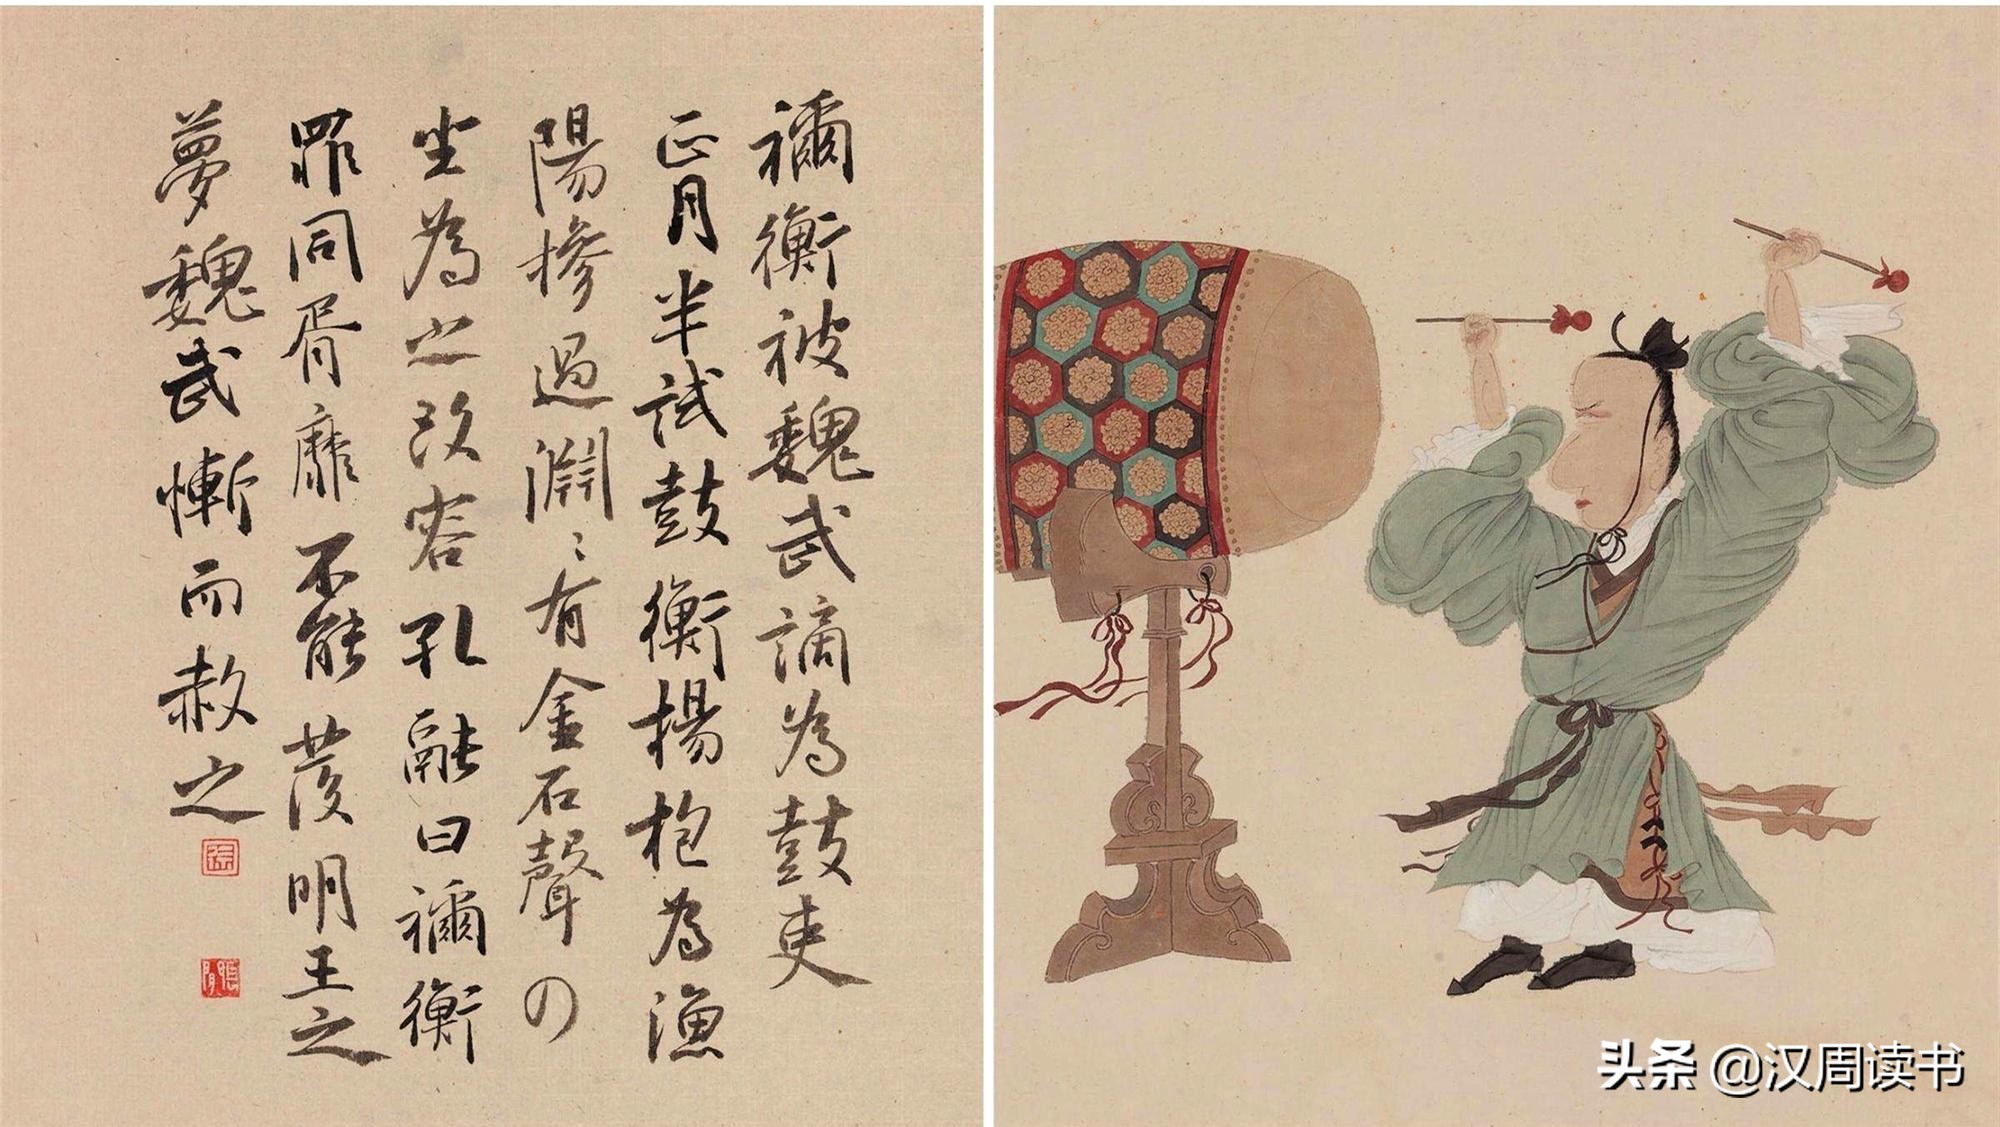 禰衡被魏武謫為鼓吏
正月半試鼓衡揚枹為漁
陽摻過淵〻有金石聲四
坐為之改容孔融曰禰衡
罪同胥靡不能發明王之
夢魏武慚而赦之
头条 @汉周读书